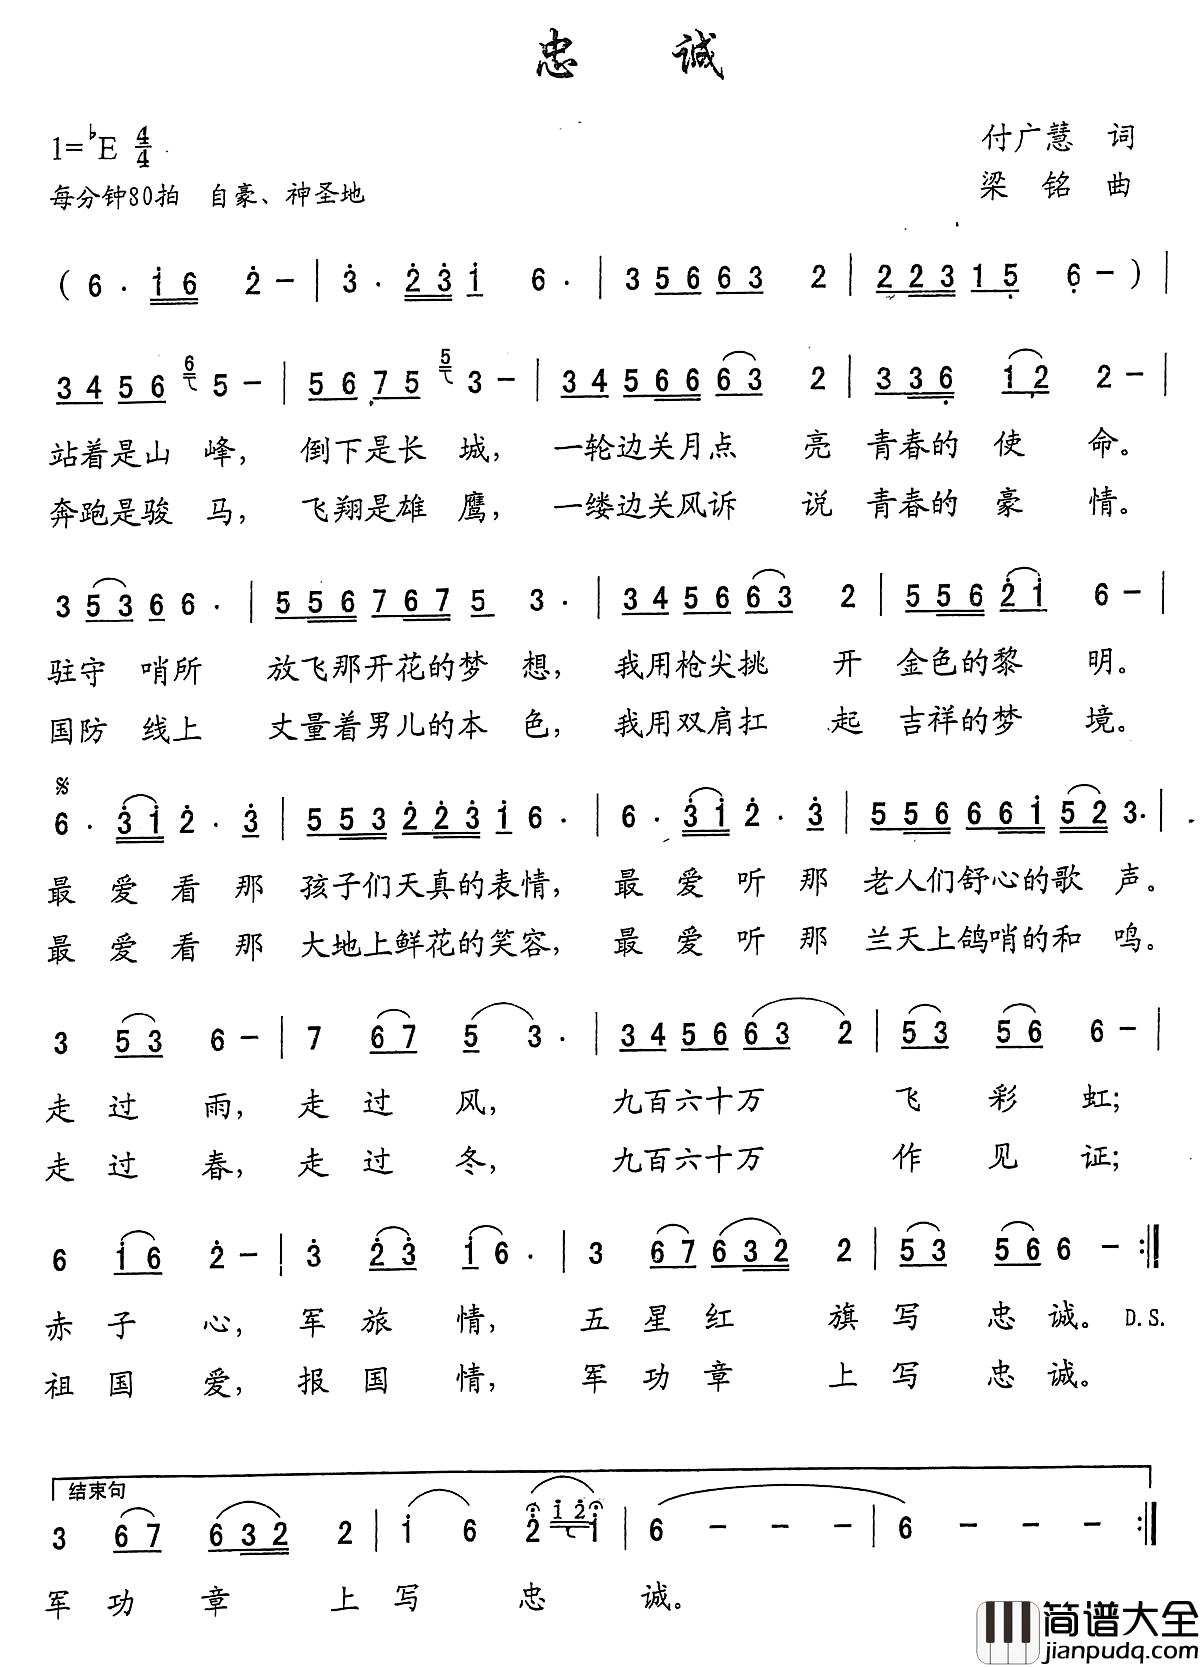 忠 诚
1=♭E 4/4
付广慧 词
每分钟80拍 自豪、神圣地
梁 铭 曲
( 6 · i 6 2 − | 3 · 2 3 i 6 · | 3 5 6 6 3 2 | 2 2 3 1 5 6 − ) |
3 4 5 6 6 5 − | 5 6 7 5 5 3 − | 3 4 5 6 6 6 3 2 | 3 3 6 1 2 2 − |
站着是山 峰， 倒下是长 城， 一轮边关月点 亮 青春的 使 命。
奔跑是骏 马， 飞翔是雄 鹰， 一缕边关风诉 说 青春的 豪 情。
3 5 3 6 6 · | 5 5 6 7 6 7 5 3 · | 3 4 5 6 6 3 2 | 5 5 6 2 i 6 − |
驻守 哨所 放飞那开花的梦 想， 我用枪尖挑 开 金色的黎 明。
国防 线上 丈量着男儿的本 色， 我用双肩扛 起 吉祥的梦 境。
𝄋
6 · 3 i 2 · 3 | 5 5 3 2 2 3 i 6 · | 6 · 3 i 2 · 3 | 5 5 6 6 6 i 5 2 3 · |
最 爱 看 那 孩子们天真的表情， 最 爱 听 那 老人们舒心的歌 声。
最 爱 看 那 大地上鲜花的笑容， 最 爱 听 那 兰天上鸽哨的和 鸣。
3 5 3 6 − | 7 6 7 5 3 · | 3 4 5 6 6 3 2 | 5 3 5 6 6 − |
走 过 雨， 走 过 风， 九百六十万 飞 彩 虹；
走 过 春， 走 过 冬， 九百六十万 作 见 证；
6 i 6 2 − | 3 2 3 i 6 · | 3 6 7 6 3 2 2 | 5 3 5 6 6 − :‖
赤 子 心， 军 旅 情， 五 星 红 旗 写 忠 诚。 D.S.
祖 国 爱， 报 国 情， 军 功 章 上 写 忠 诚。
结束句
3 6 7 6 3 2 2 | i 6 2 i 2 i | 6 − − − | 6 − − − :‖
军 功 章 上 写 忠 诚。
简谱大全
jianpudq.com